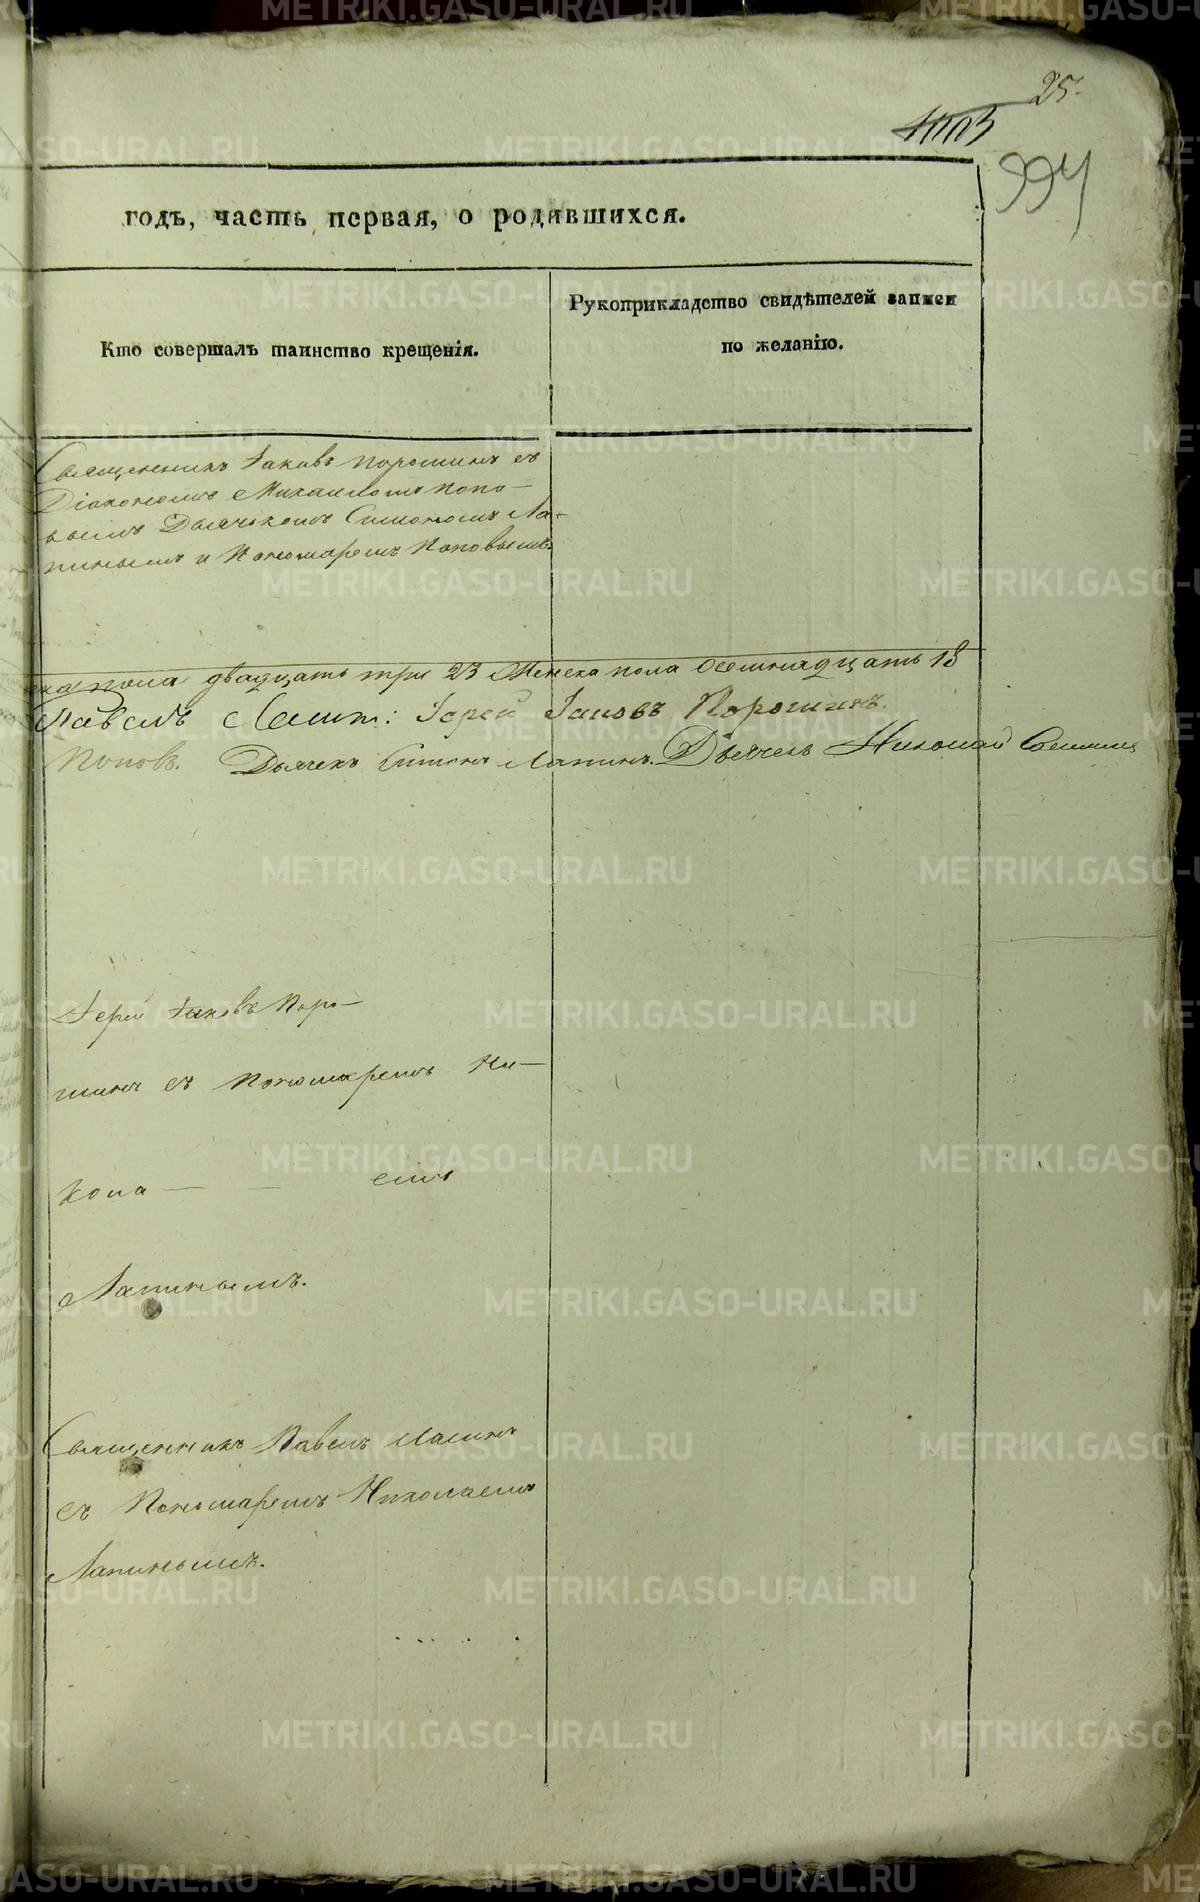 25.
994
годъ, часть первая, о родившихся.
Кто совершалъ таинство крещенія.
Рукоприкладство свидѣтелей записи
по желанію.
Священникъ Іаковъ Порошинъ съ
Діакономъ Михаиломъ Попо-
вымъ Дьячкомъ Симономъ Ла-
пинымъ и Пономаремъ Поповымъ.
пола двадцать три 23 Женска пола осемнадцать 18
Павелъ Іерей Іаковъ Порошинъ.
Поповъ. Дьячекъ Симонъ Лапинъ. Дьячекъ Николай
Іерей Іаковъ Поро-
шинъ съ Пономаремъ Ни-
кола — — емъ
Лапинымъ.
Священникъ Павелъ
съ Пономаремъ Николаемъ
Лапинымъ.
METRIKI.GASO-URAL.RU